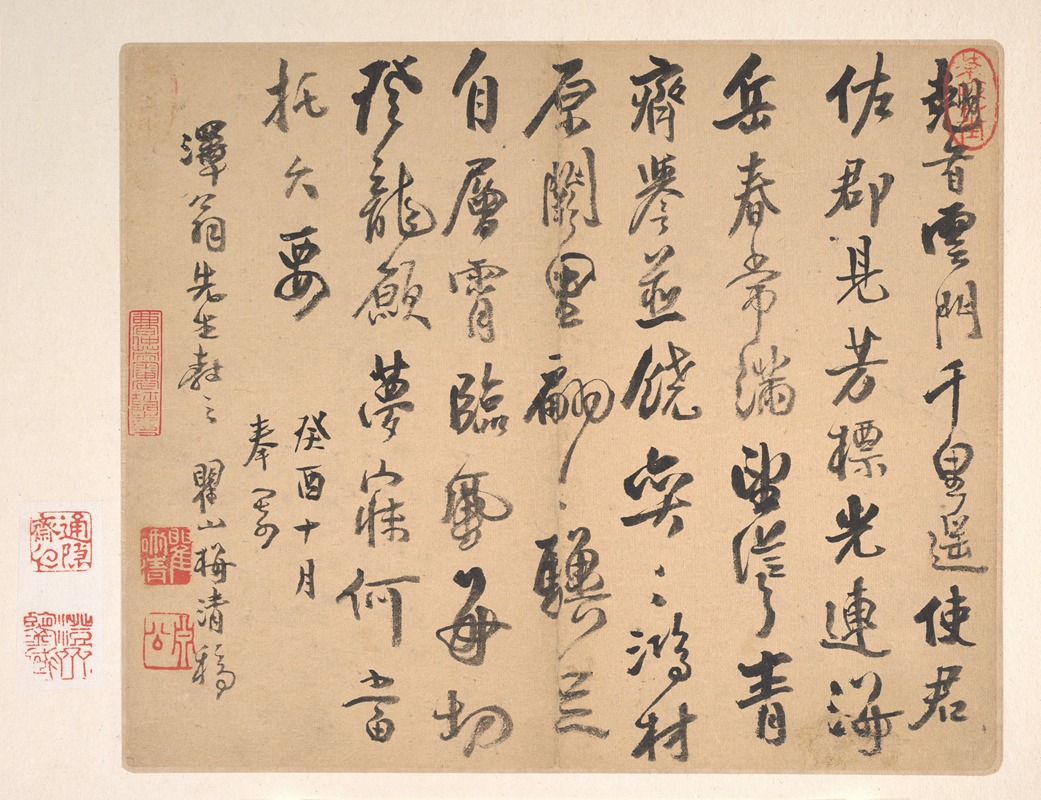 翹首雲門千里遥使君
佐郡見芳標光連海
岳春常滿望青
齊譽並饒奕〻鴻材
原闕里翩〻驥足
自層霄臨風每切
登龍願夢寐何當
托久要
癸酉十月
奉寄
澤翁先生教之 瞿山梅清稿